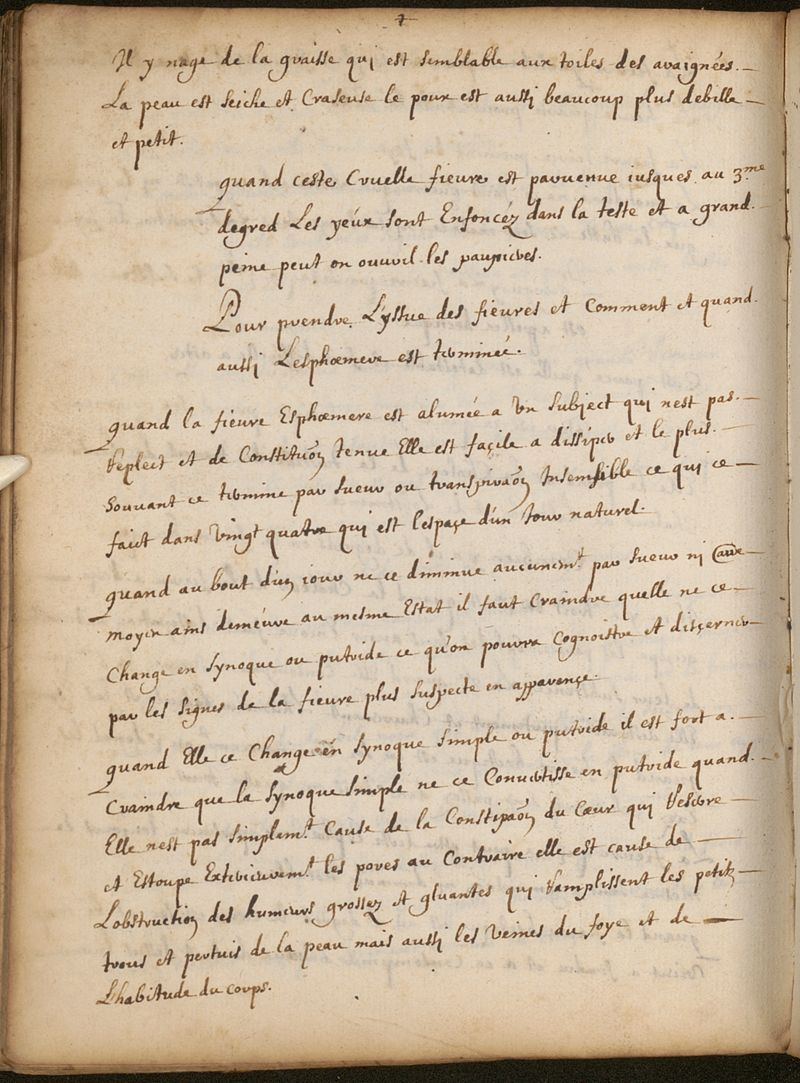 7
Il y nage de la graisse qui est semblable aux toiles des araignées.
La peau est seiche et Craseuse le poux est aussi beaucoup plus debille
et petit.
quand ceste Cruelle fieure est paruenue iusques au 3.me
degred Les yeux sont Enfoncéz dans la teste et a grand
peine peut on ouuril les paupieres.
Pour prendre L'yssue des fieures et Comment et quand
aussi Lesphoemere est terminée.
quand la fieure Esphoemere est alumée a Vn Subject qui nest pas
Repleit et de Constituõn tenue Elle est façile a dissiper et le plus
souuant ce termine par sueur ou transpiraõn Insensible ce qui ce
faict dans Vingt quatre qui est lespaçe d'un Iour naturel.
quand au bout d'un iour ne ce diminue aucunem.t par sueur ni autre
moyen ains demeure au mesme Estat il faut Craindre quelle ne ce
Change en synoque ou putride ce qu'on pourra Cognoistre et disçerner
par les signes de la fieure plus suspecte en apparençe.
quand Elle ce Change en synoque simple ou putride il est fort a
Craindre que la synoque simple ne ce Conuertisse en putride quand
Elle nest pas simplem.t Cause de la Constipaõn du Cœur qui Reserre
et Estoupe Exterieurem.t les pores au Contraire elle est cause de
Lobstruction des humeurs grossez et gluantes qui Ramplissent les petitz
trous et pertuis de la peau mais aussi les Veines du foye et de
Lhabitude du corps.